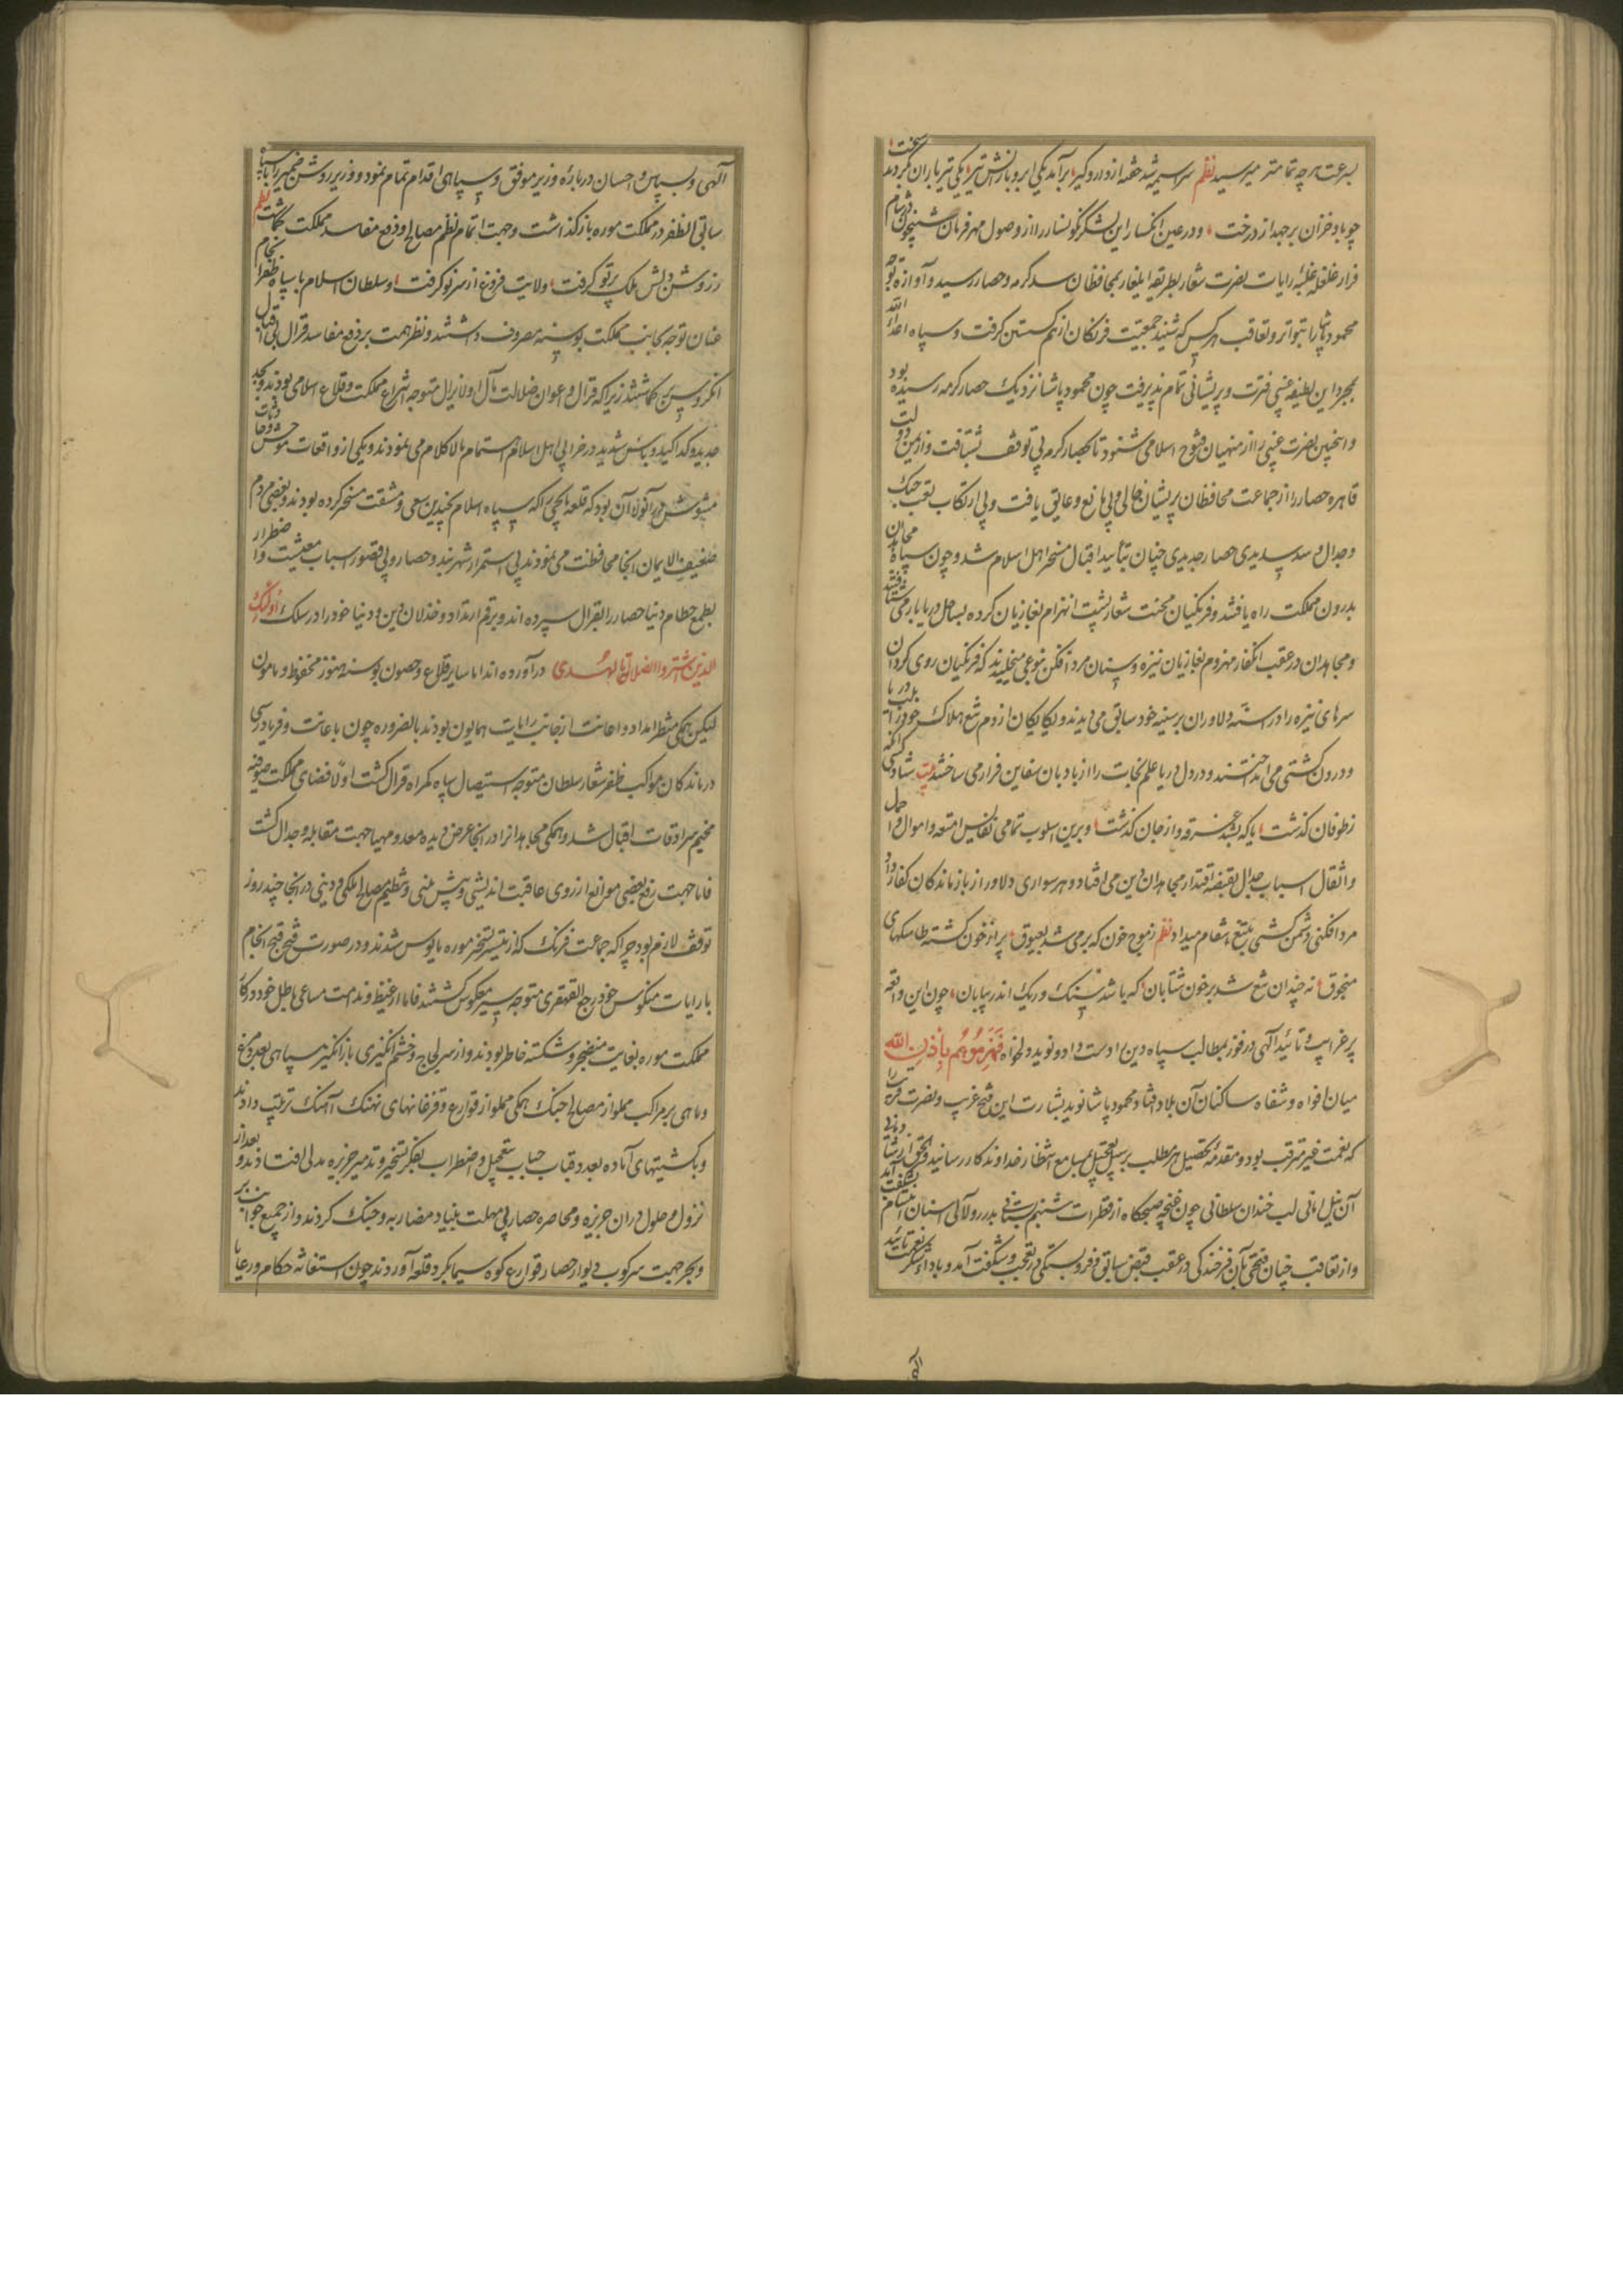 بسرعت هرچه تمامتر میرسید نظم سراسیمه شد فتنه از دار و گیر برآمد یکی ابر و بارانش تیر یکی تیر باران بکردند سخت
چو باد خزان برجهد از درخت و در عین انکسار این لشکر نگونسار را از وصول مهر فرمان شبیخون
فرار غلغله غلبه رایات نصرت شعار بطریقه ایلغار بمحافظان سد کرمه و حصار رسید و آوازه توجه
محمود پاشا را بتواتر و تعاقب هر کس که شنید جمعیت فرنکان از هم کسستن کرفت و سپاه اعداء الله
بمجرد این لطیفه غیبی فترت و پریشانی تمام پذیرفت چون محمود پاشا نزدیک حصار کرمه رسیده بود
و اینچنین نصرت غیبی را از منهیان فتوح اسلامی شنود تا بحصار کرمه بی توقف بشتافت و از یمن دولت
قاهره حصار را از جماعت محافظان پریشان خالی و بی مانع و عایق یافت و بی ارتکاب تعب جنک
و جدال سد سدیدی حصار جدیدی چنان بتأیید اقبال مسخر اهل اسلام شد و چون سپاه مجاهدان
بدرون مملکت راه یافتند و فرنکیان محنت شعار پشت انهزام بغازیان کرده بساحل دریا بار می شتافتند
و مجاهدان در عقب آن کفار مهزوم بغازیان نیزه و سنان مرد افکن بنوعی میخلیدند که فرنکیان روی کردان
سرهای نیزه را در استه دلاوران بر سینه خود سابق می دیدند و یکایک آن از دم تیغ هلاک خود را بلب دریا
و درون کشتی می انداختند و در دل دریا علم نجات را از بادبان سفاین فرار می ساختند بیت شاد کسی کانکه
ز طوفان کذشت یا که بشد غرقه و از جان کذشت و برین اسلوب تمامی نفایس امتعه و اموال و احمال
و اثقال اسباب جدال بقبضه اقتدار مجاهدان دین می افتاد و هر سواری دلاور از بازماندکان کفار داد
مرد افکنی و دشمن کشی بتیغ انتقام میداد نظم ز موج خون که بر می شد بعیوق پر از خون کشته طاسکهای
منجوق نه چندان تیغ شد بر خون شتابان که باشد سنک و ریک اندر بیابان چون این واقعه
پر غرایب و تائید آلهی در فوز بمطالب سپاه دین را دست داد و نوید دلخواه فَهَزَمُوهُم بِاِذنِ الله
میان افواه و شفاه ساکنان آن بلاد افتاد محمود پاشا نوید بشارت این فتح غریب و نصرت قریب را
که نعمت غیر مترقب بود و مقدمه تحصیل هر مطلب بر سبیل تعجیل بمسامع انتظار خداوندکار رسانید
آن نیل امانی لب خندان سلطانی چون غنچه صبحکاه از قطرات شبنم
و از تعاقب چنان فتحی بآن فرخندکی در عقب قبض سابق و فروبستکی در تعجب و شکفت آمد و باداء شکر نعمت تائید
آلهی
آلهی و سپاس و احسان در باره وزیر موفق و سپاهی اقدام تمام نمود و وزیر روشن ضمیر را با سپاه
سابق الظفر در مملکت موره باز کذاشت و جهت اتمام نظم مصالح و دفع مفاسد مملکت بکماشت نظم
ز روشن دلش ملک پرتو کرفت ولایت فروغ از سر نو کرفت و سلطان اسلام با سپاه ظفر انجام
عنان توجه بجانب مملکت بوسنه مصروف داشتند و نظر همت بر دفع مفاسد قرال بی اقبال
انکروس بر کماشتند زیرا که قرال و اعوان ضلالت مآل او لا یزال متوجه انتزاع مملکت و قلاع اسلامی بودند و بجد
جدید و کد اکید و بأس شدید در خرابی اهل اسلام اهتمام مالاکلام می نمودند و یکی از واقعات موحش
مشوش در آنولا آن بود که قلعه یایچه را که سپاه اسلام بچندین سعی و مشقت مسخر کرده بودند و بعضی مردم
ضعیف الایمان آنجا محافظت می نمودند بی استمرار شهربند و حصار و بی قصور اسباب معیشت و اضطرار
بطمع حطام دنیا حصار را بقرال سپرده اند و برقم ارتداد و خذلان دین و دنیا خود را در سلک اُولئک
الذین اشتروا الضلالة بالهُدی در آورده اند اما سایر قلاع و حصون بوسنه هنوز محفوظ و مأمون
لیکن همکی منتظر امداد و اعانت از جانب رایات همایون بودند بالضروره چون باعانت و فریادرسی
درماندکان مواکب ظفر شعار سلطان متوجه استیصال سپاه کمراه قرال کشت اولا فضای مملکت صوفیه
مخیم سرادقات اقبال شد و همکی مجاهدانرا در آنجا عرض دیده معد و مهیا جهت مقابله و جدال کشت
فاما جهت رفع بعضی موانع از روی عاقبت اندیشی و پیش بینی و تنظیم مصالح ملکی و دینی در آنجا چند روز
توقف لازم بود چرا که جماعت فرنک که از تیسیر تسخیر موره مأیوس شدند و در صورت قبح قبیح انجام
با رایات منکوس خود رجع القهقری متوجه سیر معکوس کشتند فاما از غیظ و ندامت مساعی باطل خود در کار
مملکت موره بغایت منضجر و شکسته خاطر بودند و از سر لجاج و خشم انکیزی باز انکیز سپاهی بعدد مرغ
و ماهی بر مراکب مملو از مصالح جنک همکی مملو از قوارع و قزغانهای نهنک آهنک ترتیب دادند
و با کشتیهای آماده بعدد قباب حباب بتعجیل و اضطراب بفکر تسخیر و تدمیر جزیره مدللی افتادند و بعد از
نزول و حلول در آن جزیره و محاصره حصار بی مهلت بنیاد مضاربه و جنک کردند و از جمیع جوانب بر
و بحر جهت سرکوب دیوار حصار قوارع کوه سیما بکرد قلعه آوردند چون استغاثه حکام و رعایا